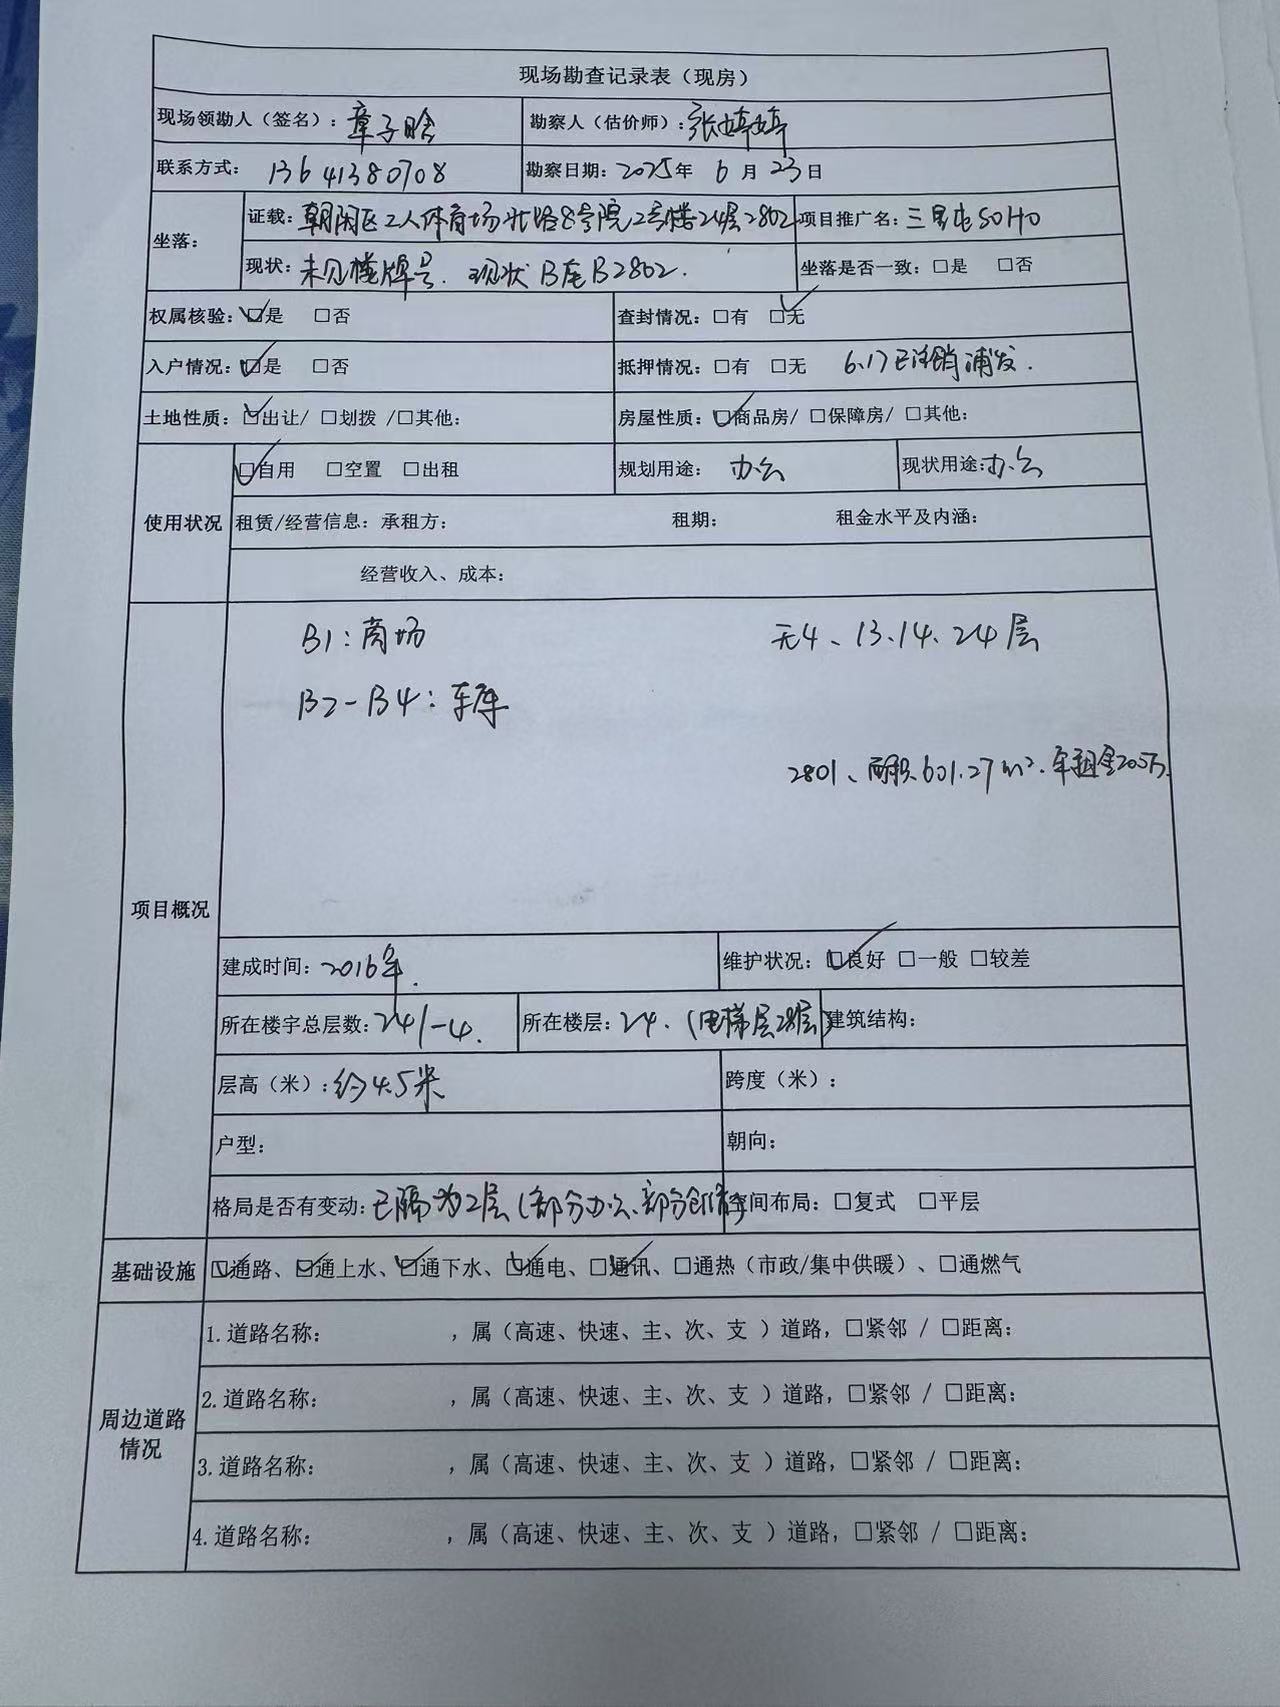 现场勘查记录表（现房）
现场领勘人（签名）：章子晗 勘察人（估价师）：张婷婷
联系方式：13641380708 勘察日期：2025年6月23日
坐落：
证载：朝阳区工人体育场北路8号院2号楼24层2802 项目推广名：三里屯SOHO
现状：未见楼牌号、现状B座B2802. 坐落是否一致：□是 □否
权属核验：☑是 □否 查封情况：□有 ☑无
入户情况：☑是 □否 抵押情况：□有 □无 6.17已注销浦发.
土地性质：☑出让/ □划拨 /□其他： 房屋性质：☑商品房/ □保障房/ □其他：
使用状况
☑自用 □空置 □出租 规划用途：办公 现状用途：办公
租赁/经营信息：承租方： 租期： 租金水平及内涵：
经营收入、成本：
项目概况
B1：商场 无4、13、14、24层
B2-B4：车库
2801、面积601.27m²、年租金200万.
建成时间：2016年. 维护状况：☑良好 □一般 □较差
所在楼宇总层数：24/-4. 所在楼层：24.（电梯层28层） 建筑结构：
层高（米）：约4.5米 跨度（米）：
户型： 朝向：
格局是否有变动：已隔为2层（部分办公、部分仓储） 空间布局：□复式 □平层
基础设施 ☑通路、☑通上水、☑通下水、☑通电、☑通讯、□通热（市政/集中供暖）、□通燃气
周边道路情况
1.道路名称： ，属（高速、快速、主、次、支 ）道路，□紧邻 / □距离：
2.道路名称： ，属（高速、快速、主、次、支 ）道路，□紧邻 / □距离：
3.道路名称： ，属（高速、快速、主、次、支 ）道路，□紧邻 / □距离：
4.道路名称： ，属（高速、快速、主、次、支 ）道路，□紧邻 / □距离：